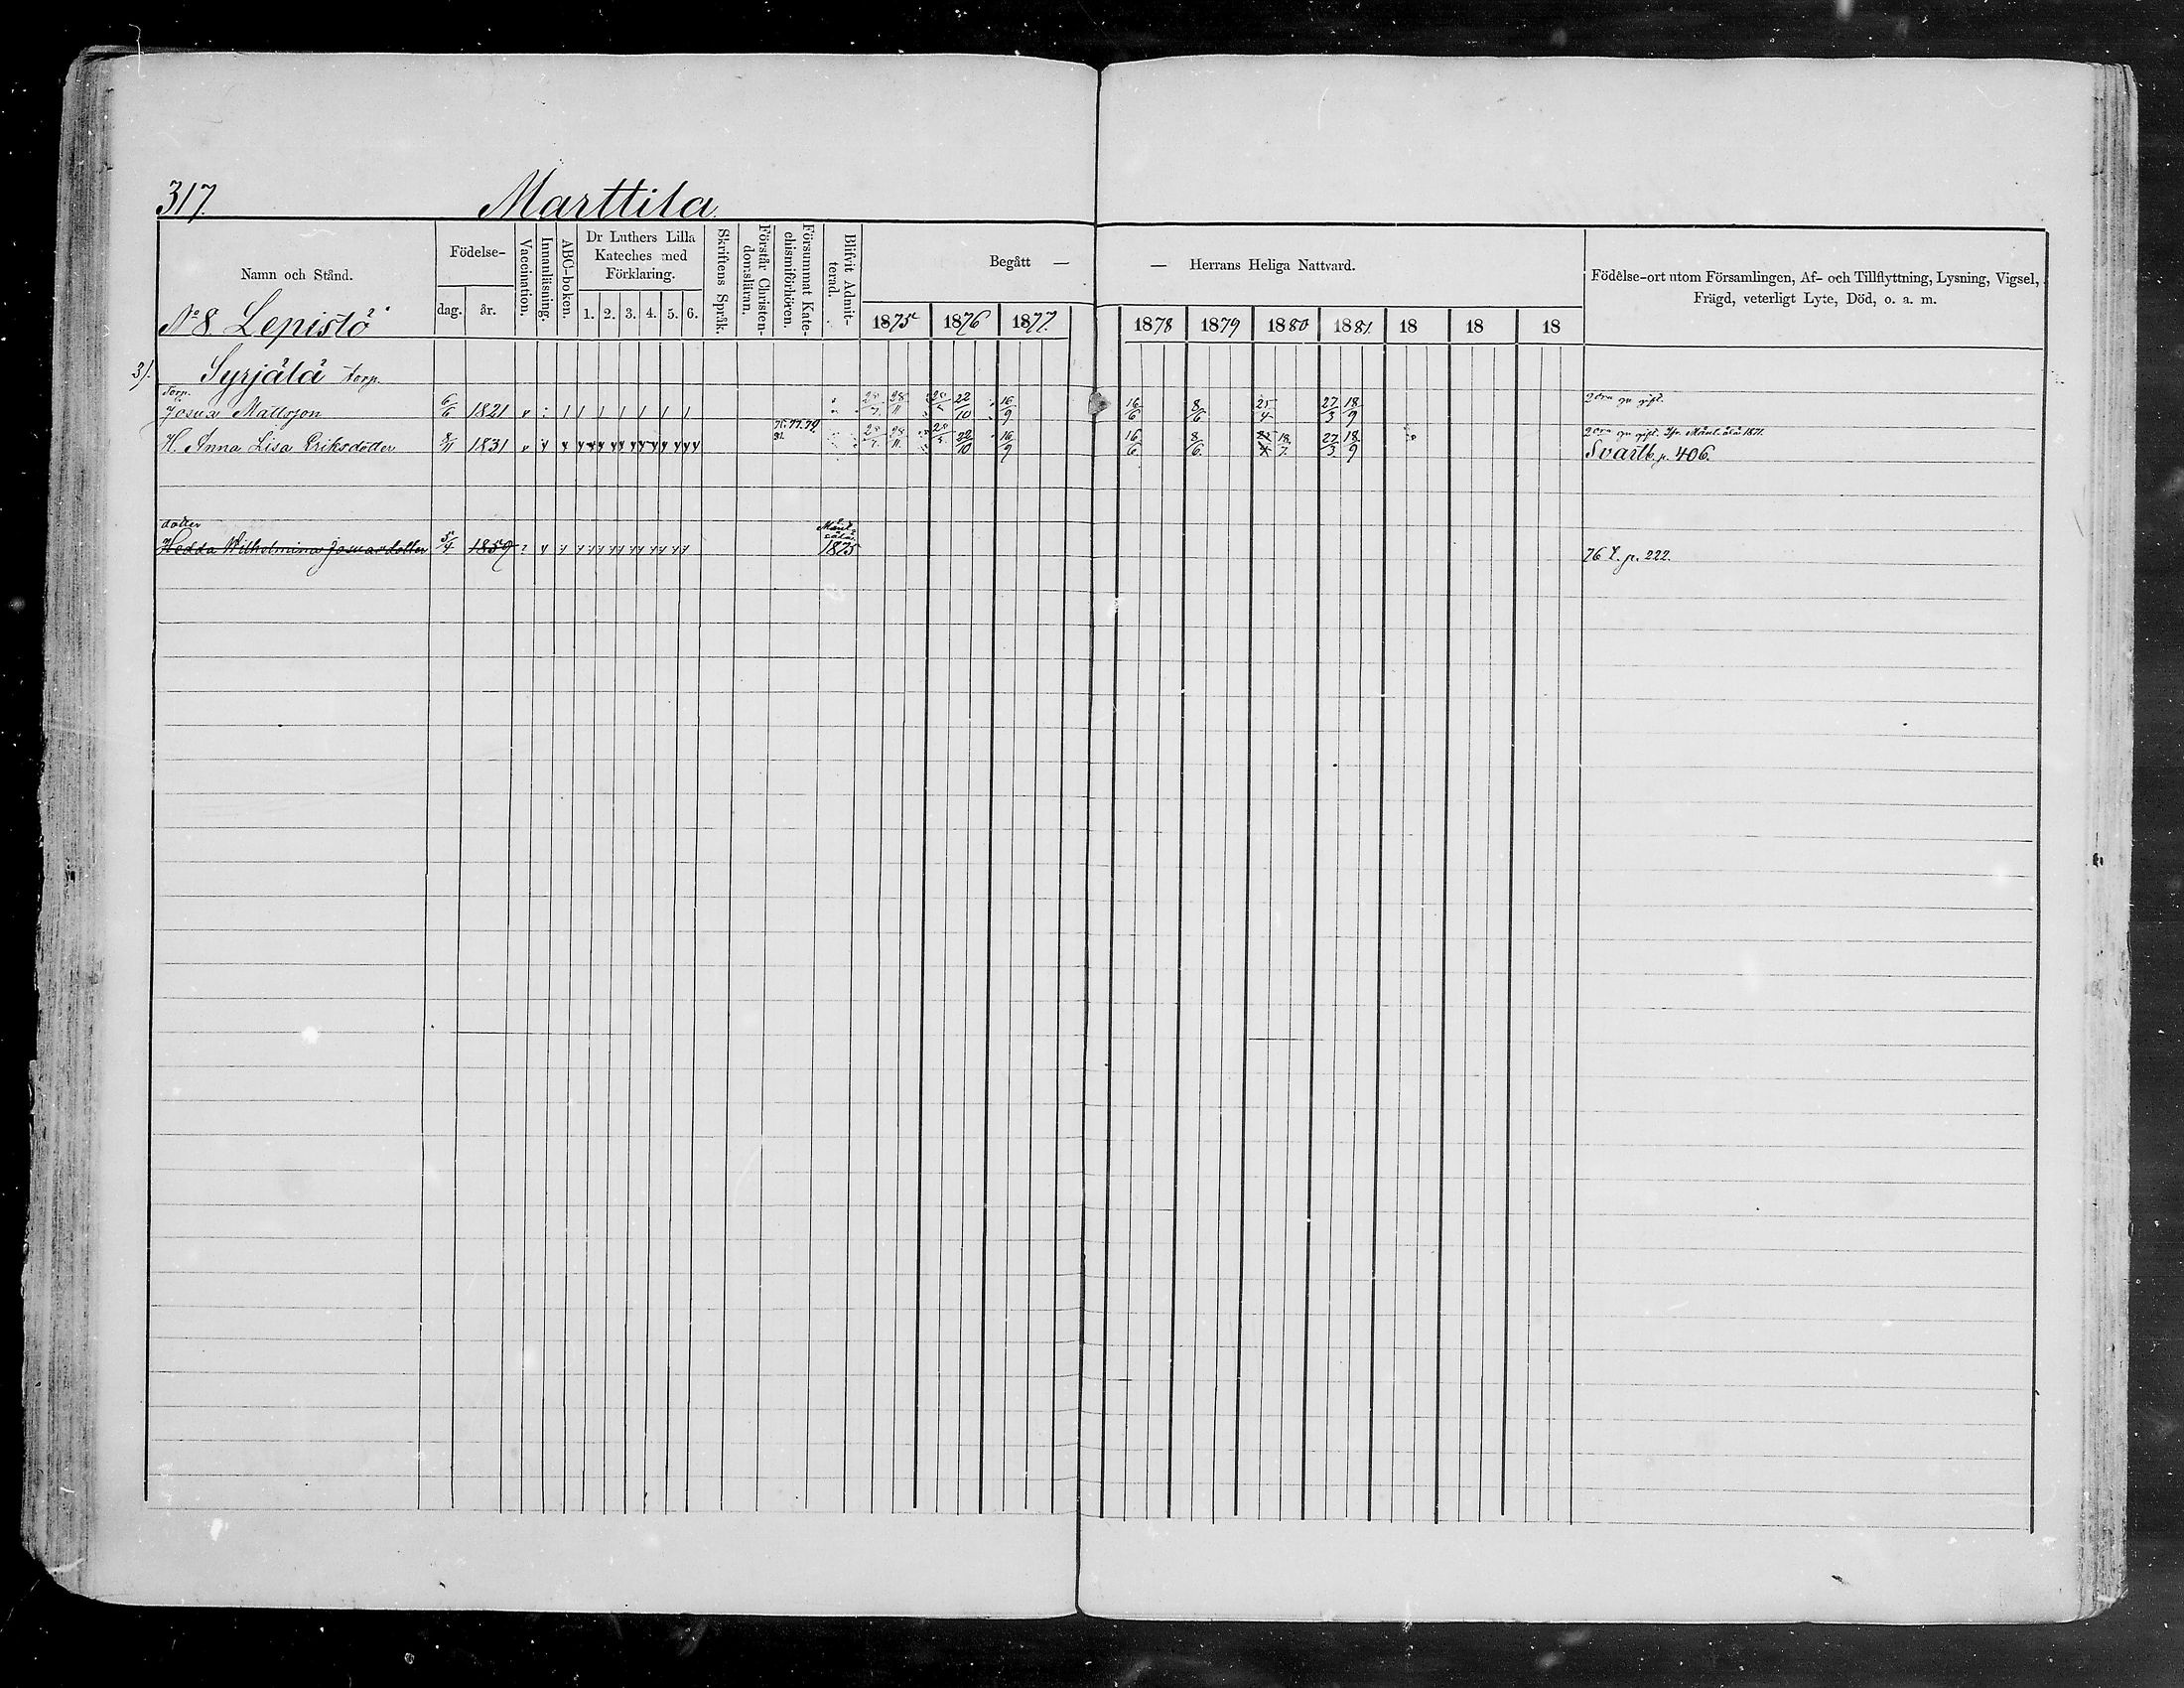 317. Marttila
Namn och Stånd.
Födelse-
dag. år.
Vaccination.
Innanläsning.
ABC-boken.
Dr Luthers Lilla
Kateches med
Förklaring.
1. 2. 3. 4. 5. 6.
Skriftens Språk.
Förstår Christen-
domsläran.
Försummat Kate-
chismiförhören.
Blifvit Admit-
terad.
Begått —
— Herrans Heliga Nattvard.
1875 1876 1877. 1878 1879 1880 1881. 18 18 18
Födelse-ort utom Församlingen, Af- och Tillflyttning, Lysning, Vigsel,
Frägd, veterligt Lyte, Död, o. a. m.
No 8 Lepistö
3/. Syrjälä torp.
Torp.
Josua Mattsson 6/6 1821 v 22/10 16/9 16/6 8/6 25/4 27/3 18/9 gift.
76.77.79. 81.
H. Anna Lisa Eriksdotter 8/11 1831 v 22/10 16/9 16/6 8/6 18/7 27/3 18/9 gift. 1871.
Svartb. p. 406.
dotter
Hedda Wilhelmina Josuadotter 5/4 1859 1875 76 p. 222.